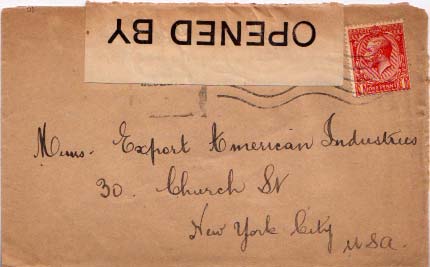 OPENED BY
Messrs. Export American Industries
30. Church St
New York City
USA.
ONE PENNY